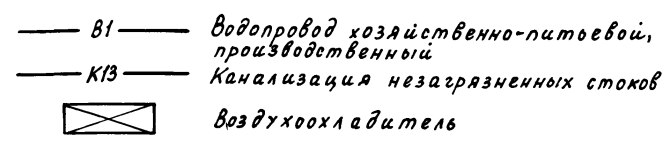 В1 Водопровод хозяйственно-питьевой,
производственный
К13 Канализация незагрязненных стоков
Воздухоохладитель